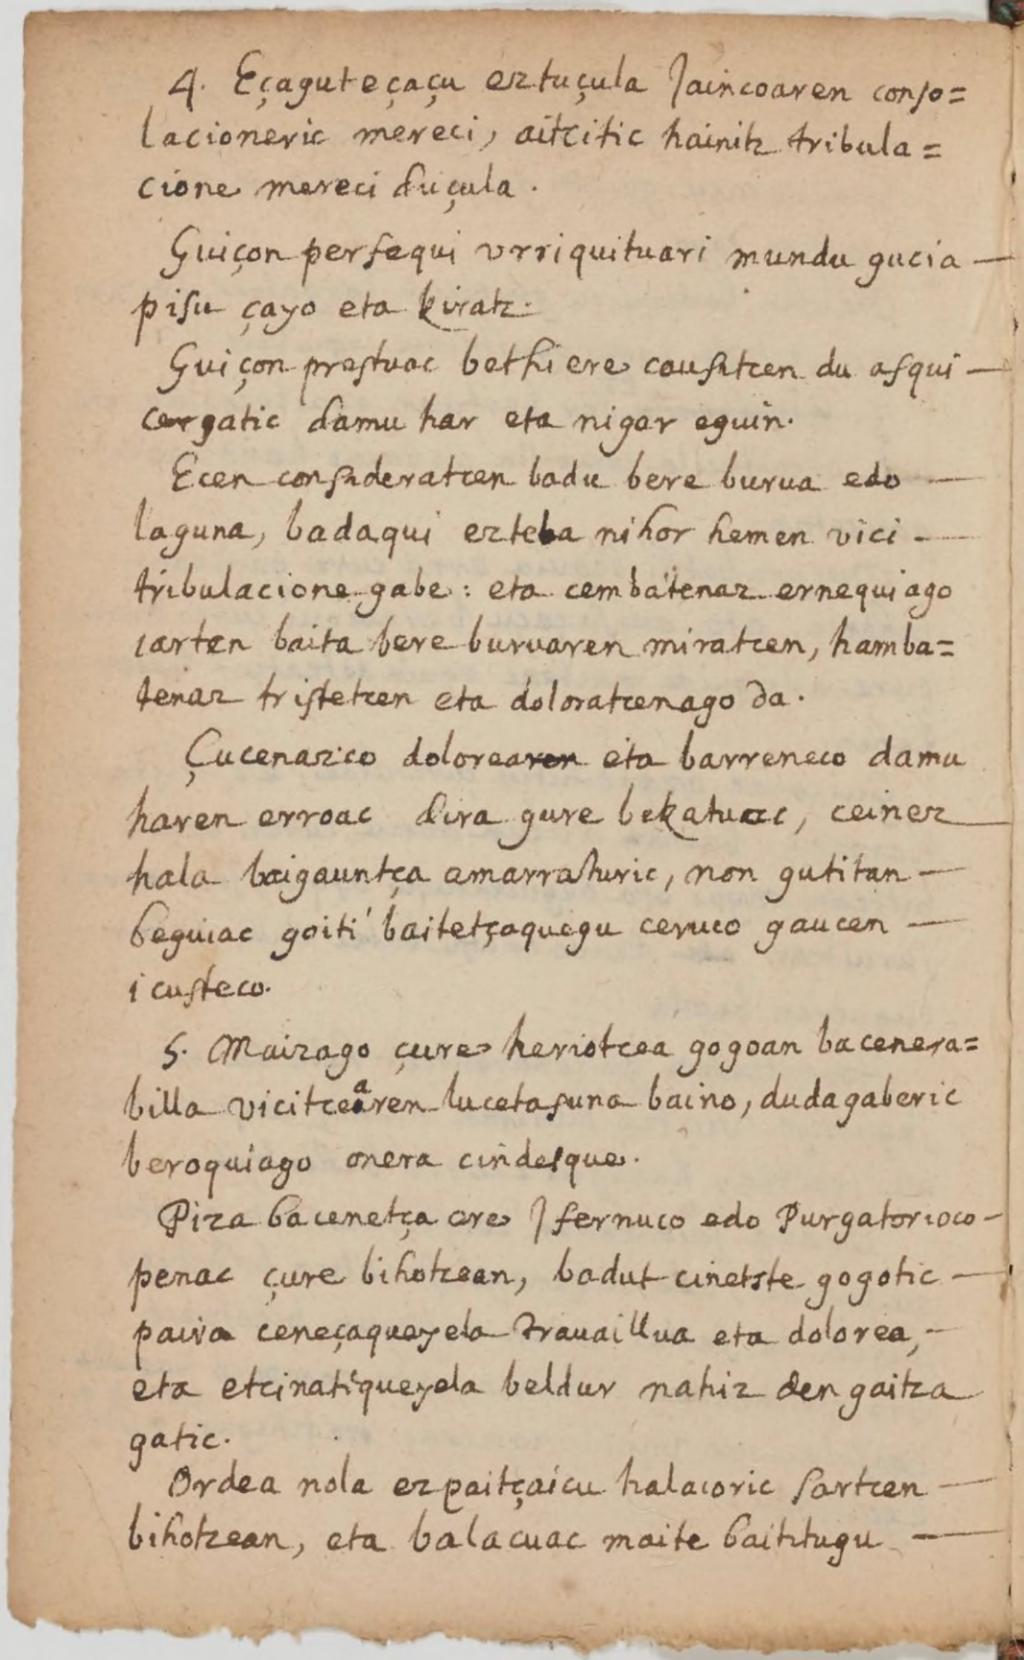 4. Eçaguteçaçu eztuçula Jaincoaren conso=
lacioneric mereci, aitcitic hainitz tribula=
cione mereci duçula.
Guiçon persequi vrriquituari mundu gucia —
pisu çayo eta kiratz.
Guiçon prestuac bethiere causitcen du asqui —
cergatic damu har eta nigar eguin.
Ecen consideratcen badu bere burua edo —
laguna, badaqui ezteba nihor hemen vici —
tribulacione gabe: eta cembatenaz ernequiago
iarten baita bere buruaren miratcen, hamba=
tenaz tristetcen eta doloratcenago da.
Çucenazco dolorearen eta barreneco damu
haren erroac dira gure bekatuac, ceinez
hala baigauntça amarraturic, non gutitan —
beguiac goiti baitetçaquegu ceruco gaucen —
icusteco.
5. Maizago çure heriotcea gogoan bacenera=
billa vicitcearen lucetasuna baino, dudagaberic
beroquiago onera cindesque.
Piza bacenetça ere Jfernuco edo Purgatorioco —
penac çure bihotzean, badut cinetste gogotic —
paira ceneçaqueyela trauaillua eta dolorea, —
eta etcinatiqueyela beldur nahiz den gaitza
gatic.
Ordea nola ezpaitçaicu halacoric sartcen —
bihotzean, eta balacuac maite baititugu —